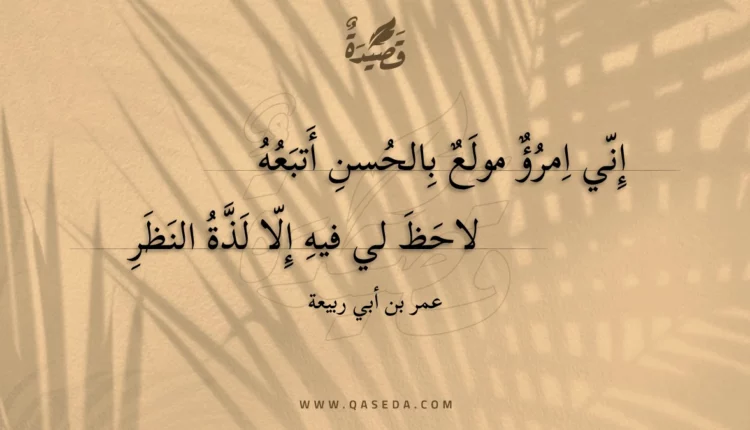 قَصِيدَةٌ
إِنّي اِمرُؤٌ مولَعٌ بِالحُسنِ أَتبَعُهُ
لاحَظَ لي فيهِ إِلّا لَذَّةُ النَظَرِ
عمر بن أبي ربيعة
WWW.QASEDA.COM